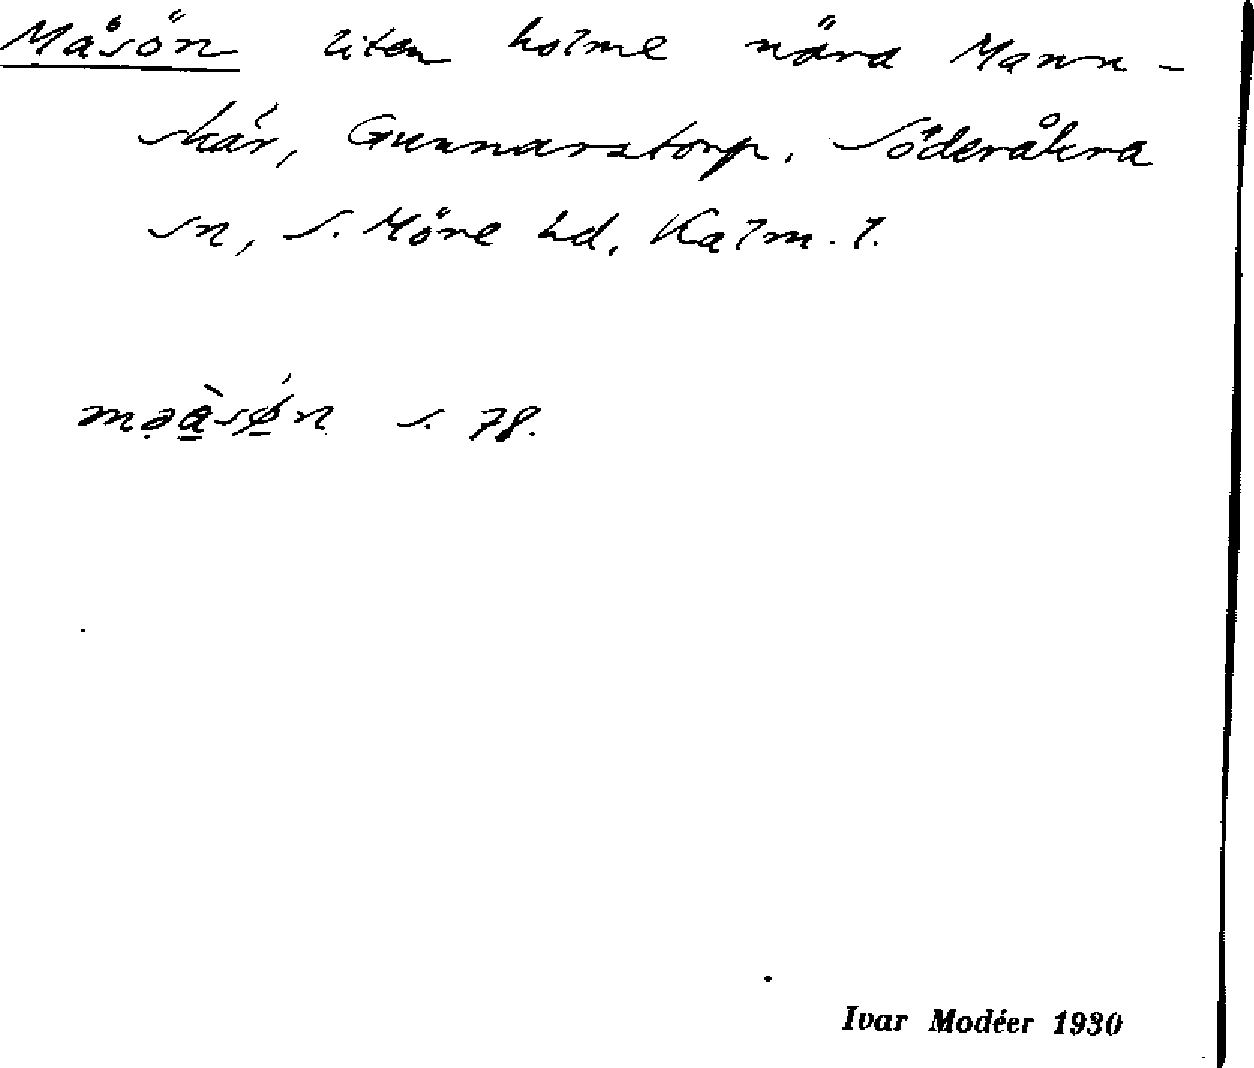 Måsön liten holme nära Mann-
skär, Gunnarstorp, Söderåkra
sn, S. Möre hd, Kalm. l.
məa̠̋sǿ̠n s. 78.
Ivar Modéer 1930